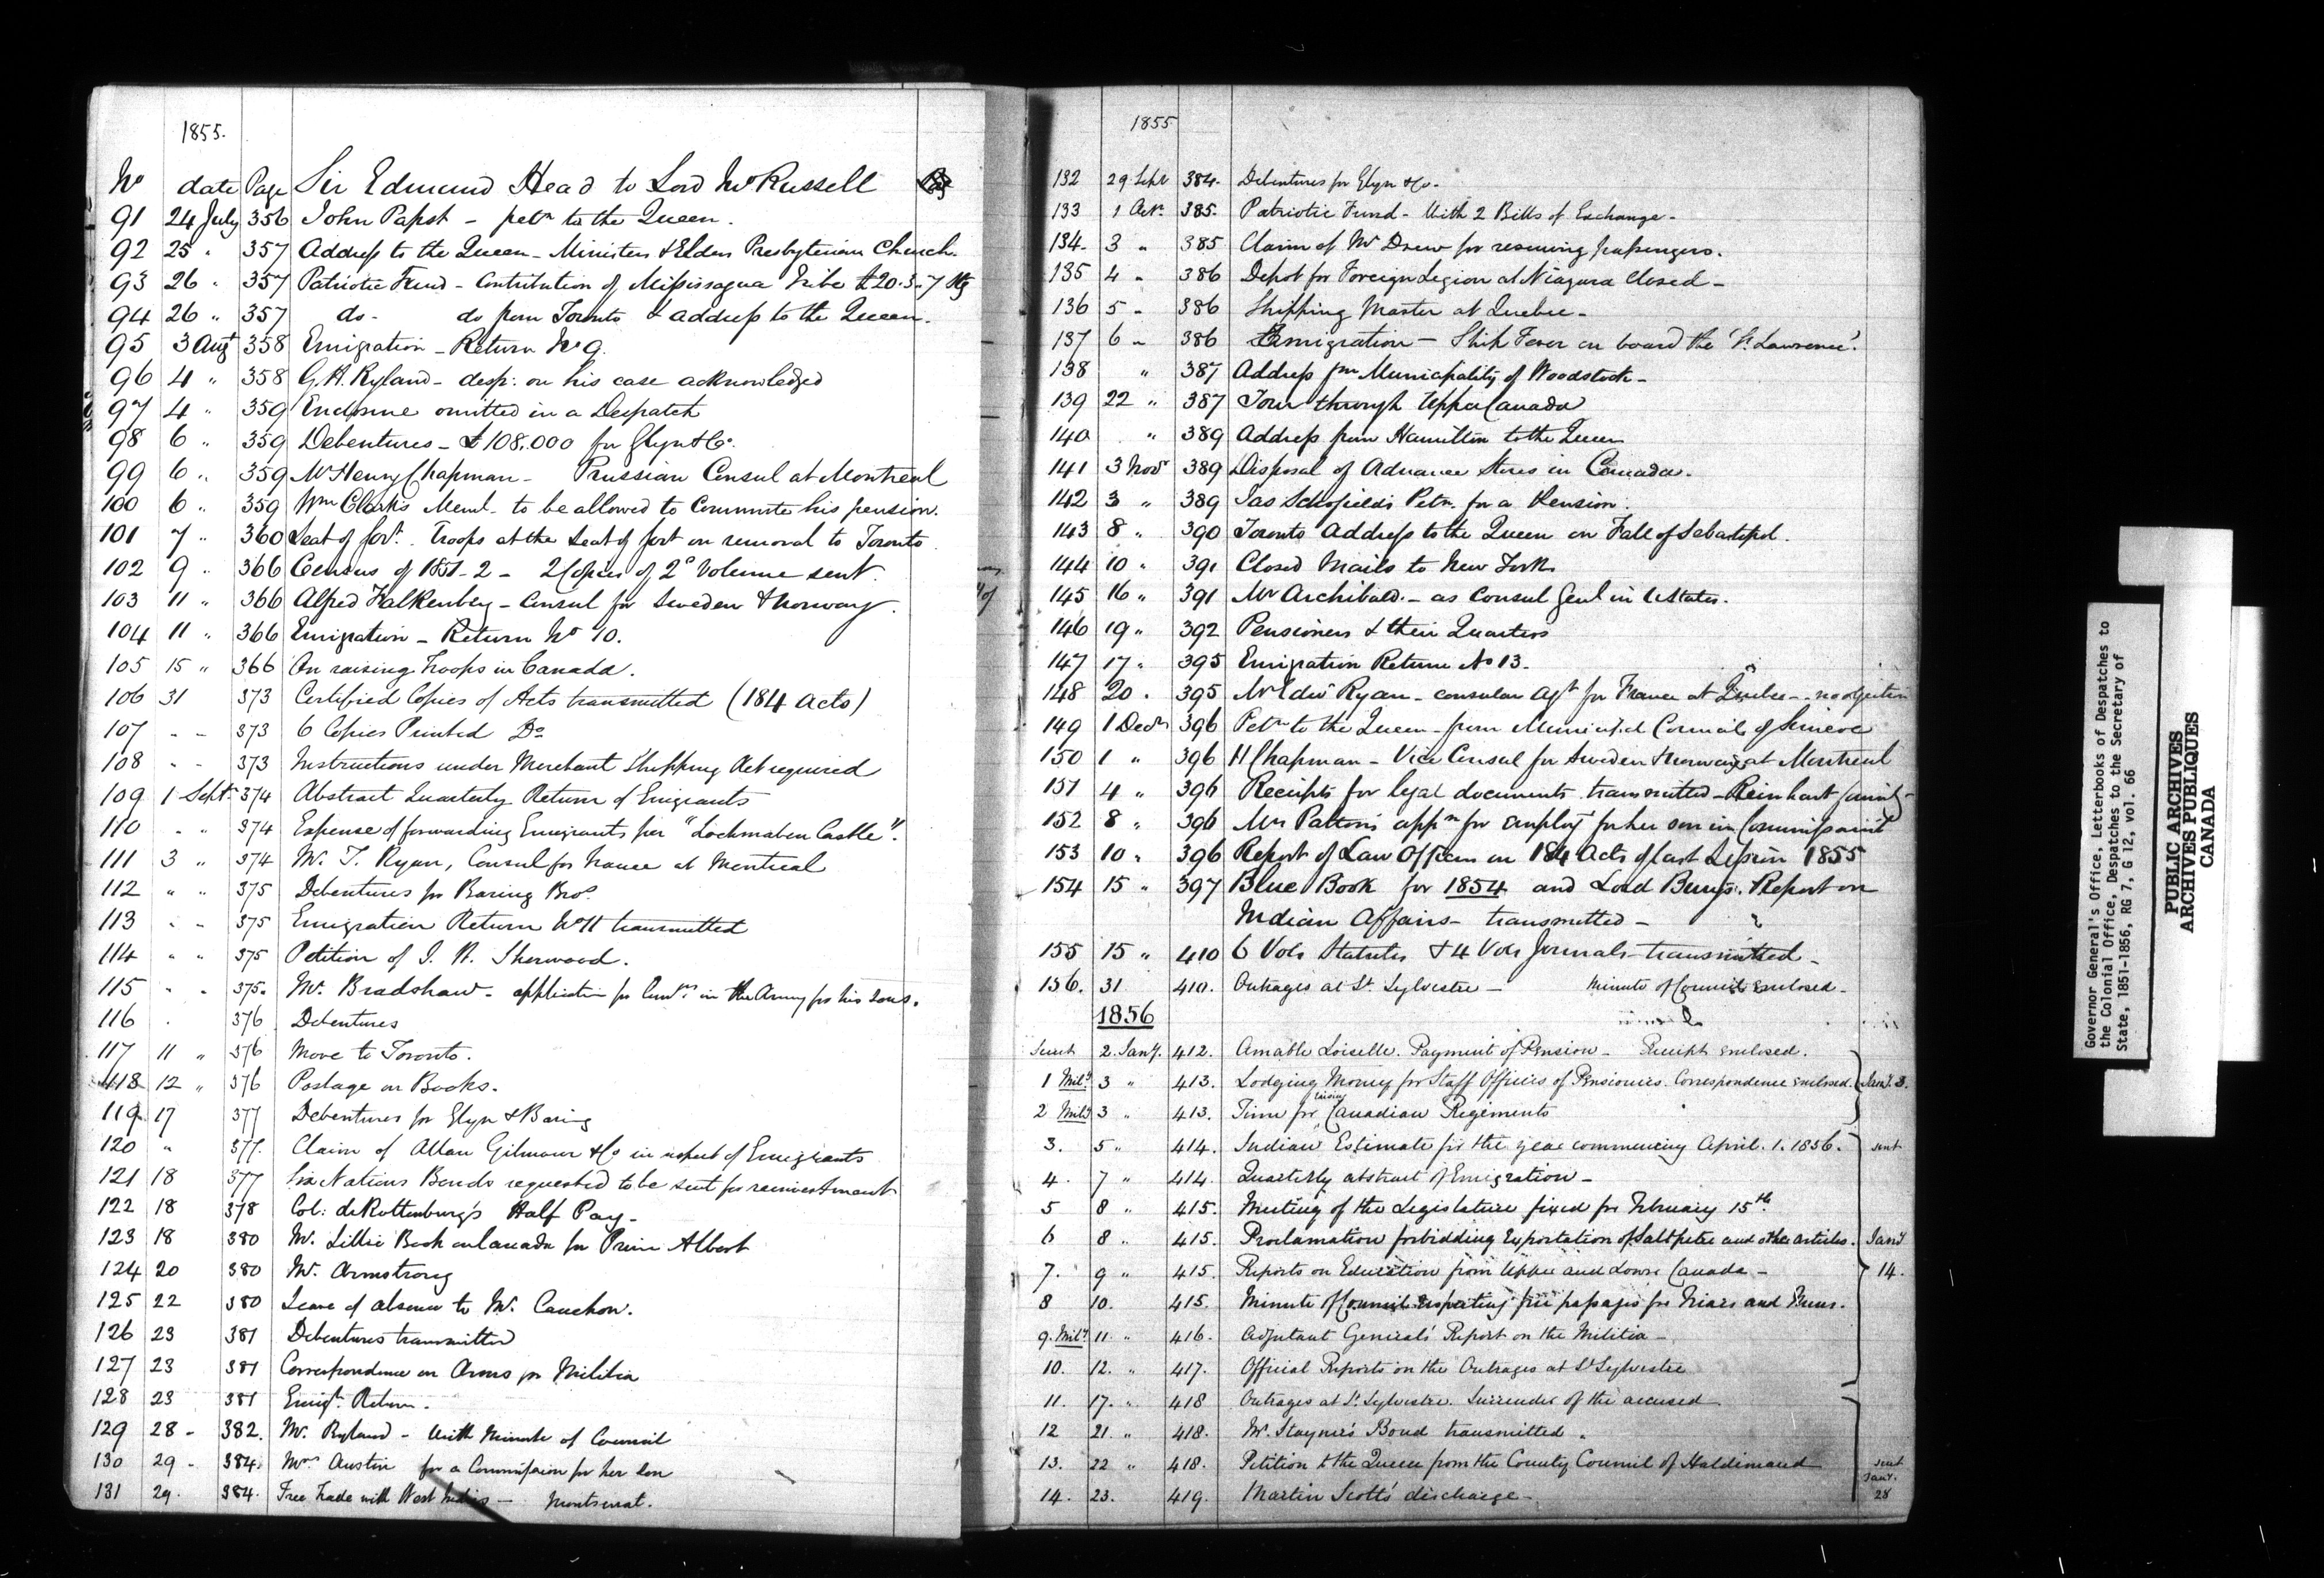 1855.
No date Page Sir Edmund Head to Lord Jno Russell
91 24 July 356 John Papst - petn to the Queen.
92 25 " 357 Address to the Queen - Ministers & Elders Presbyterian Church.
93 26 " 357 Patriotic Fund - Contribution of Mississagua Tribe £20.3.7 Stg
94 26 " 357 do - do from Toronto & address to the Queen.
95 3 Augt 358 Emigration - Return No 9.
96 4 " 358 G.H. Ryland - desp: on his case acknowledged
97 4 " 359 Enclosure omitted in a Despatch
98 6 " 359 Debentures - £108,000 for Glyn & Co.
99 6 " 359 Mr Henry Chapman - Prussian Consul at Montreal
100 6 " 359 Wm Clark's Meml - to be allowed to Commute his pension.
101 7 " 360 Seat of Govt. Troops at the Seat of Govt on removal to Toronto
102 9 " 366 Census of 1851-2 - 2 Copies of 2d Volume sent.
103 11 " 366 Alfred Falkenberg - Consul for Sweden & Norway.
104 11 " 366 Emigration - Return No 10.
105 15 " 366 On raising Troops in Canada.
106 31 373 Certified Copies of Acts transmitted (184 Acts)
107 - - 373 6 Copies Printed Do
108 - - 373 Instructions under Merchant Shipping Act required
109 1 Sept. 374 Abstract Quarterly Return of Emigrants
110 - " 374 Expense of forwarding Emigrants per "Lochmaben Castle".
111 3 " 374 Mr. T. Ryan, Consul for France at Montreal
112 " " 375 Debentures for Baring Bros
113 - - 375 Emigration Return No 11 transmitted
114 " " 375 Petition of J. H. Sherwood.
115 - - 375. Mr. Bradshaw - application for Comns in the Army for his sons.
116 . 376 Debentures
117 11 " 376 Move to Toronto.
118 12 " 376 Postage on Books.
119 17 377 Debentures for Glyn & Baring
120 " 377. Claim of Allan Gilmour & Co in respect of Emigrants
121 18 377 Six Nations Bonds requested to be sent for reinvestment
122 18 378 Col: de Rottenburg's Half Pay -
123 18 380 Mr. Lillie Book on Canada for Prince Albert
124 20 380 Mr. Armstrong
125 22 380 Leave of absence to Mr. Cauchon.
126 23 381 Debentures transmitted
127 23 381 Correspondence on Arms for Militia
128 23 381 Emigt. Return.
129 28 - 382. Mr. Ryland - with Minute of Council
130 29 - 384. Mrs Austin for a Commission for her son
131 29. 384. Free Trade with West Indies - Montserrat.
1855
132 29 Sept 384. Debentures for Glyn & Co.
133 1 Octr. 385. Patriotic Fund - With 2 Bills of Exchange -
134. 3 " 385 Claim of Mr Drew for rescuing passengers.
135 4 " 386 Depot for Foreign Legion at Niagara Closed -
136 5 - 386 Shipping Master at Quebec -
137 6 " 386 Emigration - Ship Fever on board the 'St. Lawrence'.
138 " 387 Address fm Municipality of Woodstock -
139 22 " 387 Tour through Upper Canada
140 " 389 Address from Hamilton to the Queen
141 3 Novr 389 Disposal of Ordnance Stores in Canada.
142 3 " 389 Jas Schofield's Petn. for a Pension.
143 8 " 390 Toronto Address to the Queen on Fall of Sebastopol.
144 10 " 391 Closed Mails to New York
145 16 " 391 Mr Archibald. - as Consul Genl in U States.
146 19 " 392 Pensioners & their Quarters
147 17 " 395 Emigration Return No 13.
148 20 . 395 Mr Edwd Ryan - consular Agt for France at Quebec - no objection
149 1 Decr 396 Petn to the Queen - from Municipal Council of Simcoe
150 1 " 396 H Chapman - Vice Consul for Sweden & Norway at Montreal
151 4 " 396 Receipts for legal documents transmitted - Reinhart family -
152 8 " 396 Mrs Patton's appn for employt for her son in Commissariat
153 10 " 396 Report of Law Officers on 184 Acts of last Session 1855
154 15 " 397 Blue Book for 1854 and Lord Bury's Report on
Indian Affairs - transmitted -
155 15 " 410 6 Vols Statutes & 4 Vols Journals transmitted -
156. 31 410. Outrages at St. Sylvestre - Minute of Council enclosed.
1856
Secret 2 Jany. 412. Amable Loiselle. Payment of Pension - Receipt enclosed.
1 Mily 3 " 413. Lodging Money for Staff Officers of Pensioners. Correspondence enclosed. Jany. 3.
2 Mily 3 " 413. Time for raising Canadian Regiments
3. 5 " 414. Indian Estimate for the year commencing April. 1. 1856. sent
4. 7 " 414. Quarterly abstract of Emigration -
5 8 " 415. Meeting of the Legislature fixed for February 15th
6 8 " 415. Proclamation forbidding Exportation of Saltpetre and other articles. Jany
7. 9 " 415. Reports on Education from Upper and Lower Canada - 14.
8 10. 415. Minute of Council respecting free passages for Friars and Nuns.
9. Mily 11 " 416. Adjutant General's Report on the Militia -
10. 12. " 417. Official Reports on the Outrages at St Sylvestre
11. 17. " 418 Outrages at St. Sylvestre. Surrender of the accused
12 21. " 418. Mr. Stayner's Bond transmitted.
13. 22 " 418. Petition to the Queen from the County Council of Haldimand sent
Jany.
14. 23. 419. Martin Scott's discharge - 28
Governor General's Office, Letterbooks of Despatches to
the Colonial Office, Despatches to the Secretary of
State, 1851-1856, RG 7, G 12, vol. 66
PUBLIC ARCHIVES
ARCHIVES PUBLIQUES
CANADA